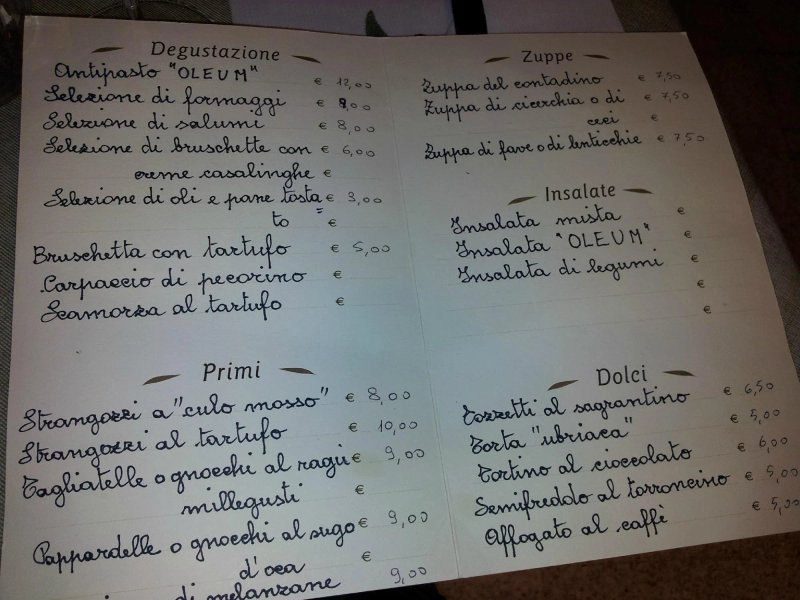 Degustazione
Antipasto "OLEUM" € 12,00
Selezione di formaggi € 9,00
Selezione di salumi € 8,00
Selezione di bruschette con € 6,00
creme casalinghe €
Selezione di oli e pane tosta € 3,00
to €
Bruschetta con tartufo € 5,00
Carpaccio di pecorino €
Scamorza al tartufo €
Primi
Strangozzi a "culo mosso" € 8,00
Strangozzi al tartufo € 10,00
Tagliatelle o gnocchi al ragù € 9,00
millegusti €
Pappardelle o gnocchi al sugo € 9,00
d'oca €
di melanzane 9,00
Zuppe
Zuppa del contadino € 7,50
Zuppa di cicerchia o di € 7,50
ceci €
Zuppa di fave o di lenticchie € 7,50
Insalate
Insalata mista €
Insalata "OLEUM" €
Insalata di legumi €
€
€
Dolci
Tozzetti al sagrantino € 6,50
Torta "ubriaca" € 5,00
Tortino al cioccolato € 6,00
Semifreddo al torroncino € 5,00
Affogato al caffè € 5,00